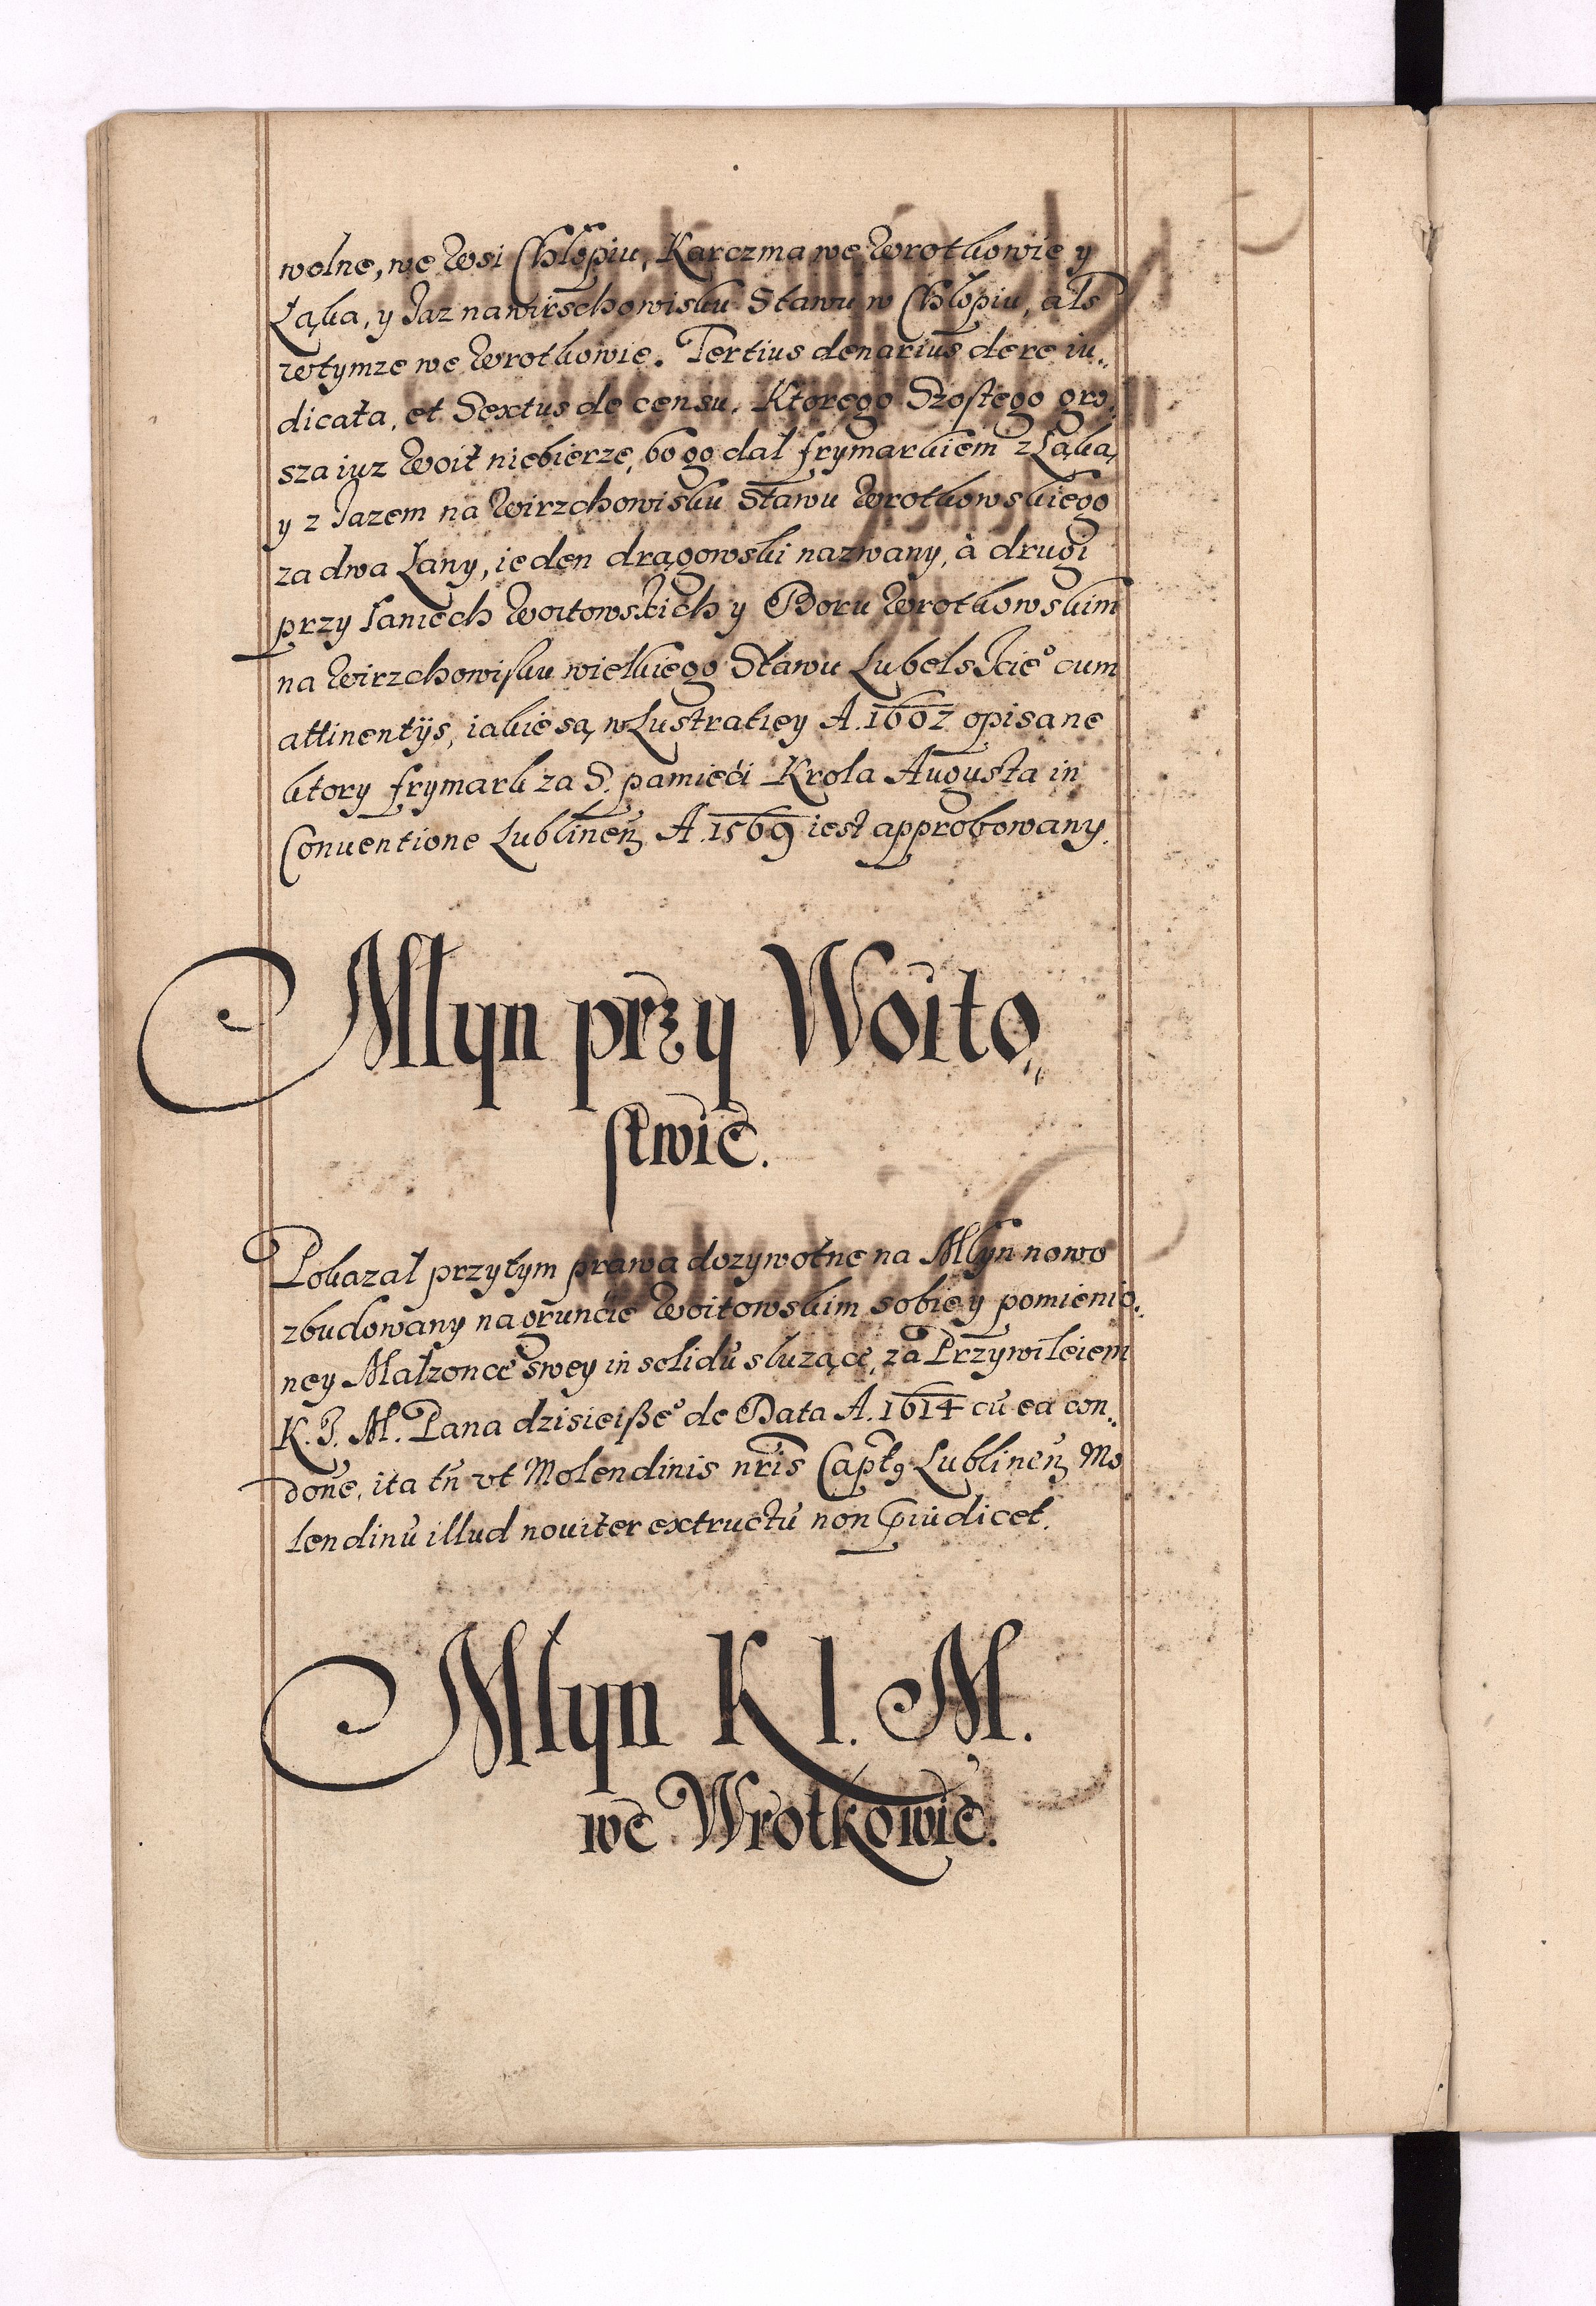 wolne, we Wsi Chłopiu, Karczma we Wrotkowie y
Łąka, y Jaz nawirschowisku Stawu w Chłopiu, als
wtymze we Wrotkowie. Tertius denarius de re iu„
dicata, et Sextus de censu. Ktorego Szostego gro„
sza iuz Woit niebierze, bo go dał frymarkiem z Łąką,
y z Jazem na Wirzchowisku Stawu Wrotkowskiego
za dwa Łany, ieden drągowski nazwany, à drugi
przy Łaniech Woitowskich y Boru Wrotkowskim
na Wirzchowisku wielkiego Stawu Lubelskie° cum
attinentijs, iakie są, w Lustratiey A. 1602 opisane
ktory frymark za S. pamięći Krola Augusta in
Conuentione Lublineñ A. 1569 iest approbowany.
Młyn przy Woito„
stwie.
Pokazał przytym prawa dozywotne na Młyn nowo
zbudowany na grunćie Woitowskim sobie y pomienio„
ney Małzonce swey in solidū słuzące, za Przywileiem
K. J. M. Pana dzisieiße° de Data A. 1614 cū ea con„
done, ita tñ vt Molendinis nris Capt9 Lublineñ Mo
lendinū illud nouiter extructū non piudicet.
Młyn K I. M.
we Wrotkowie.